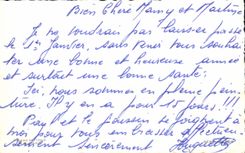 Bien Chère Mamy et Martine
Je ne voudrai pas laisser passer
le 1er Janvier, sans vous souhai
ter une bonne et heureuse année
et surtout une bonne santé.
Ici, nous sommes en pleine pein
ture. Il y en a pour 15 jours!!!
Paul et le poussin se joignent à
moi pour vous embrasser affectueu
sement sincèrement Huguette